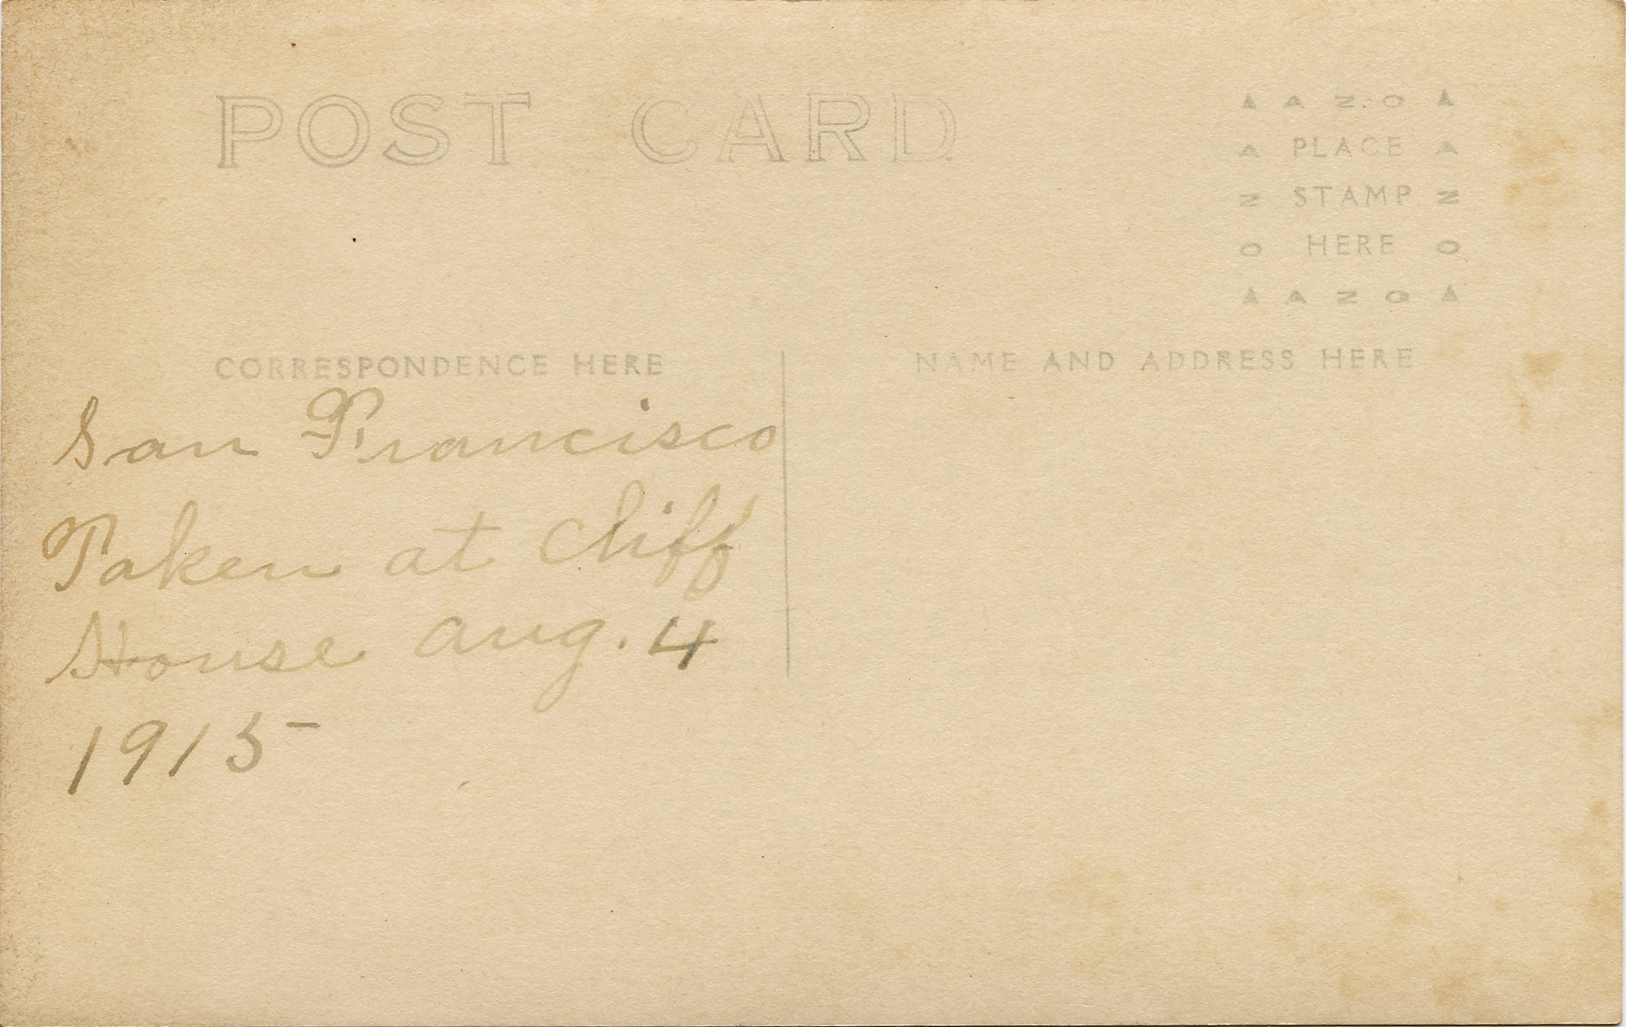 POST CARD
AZO
A PLACE A
N STAMP N
O HERE O
AZO
CORRESPONDENCE HERE
NAME AND ADDRESS HERE
San Francisco
Taken at Cliff
House Aug. 4
1915